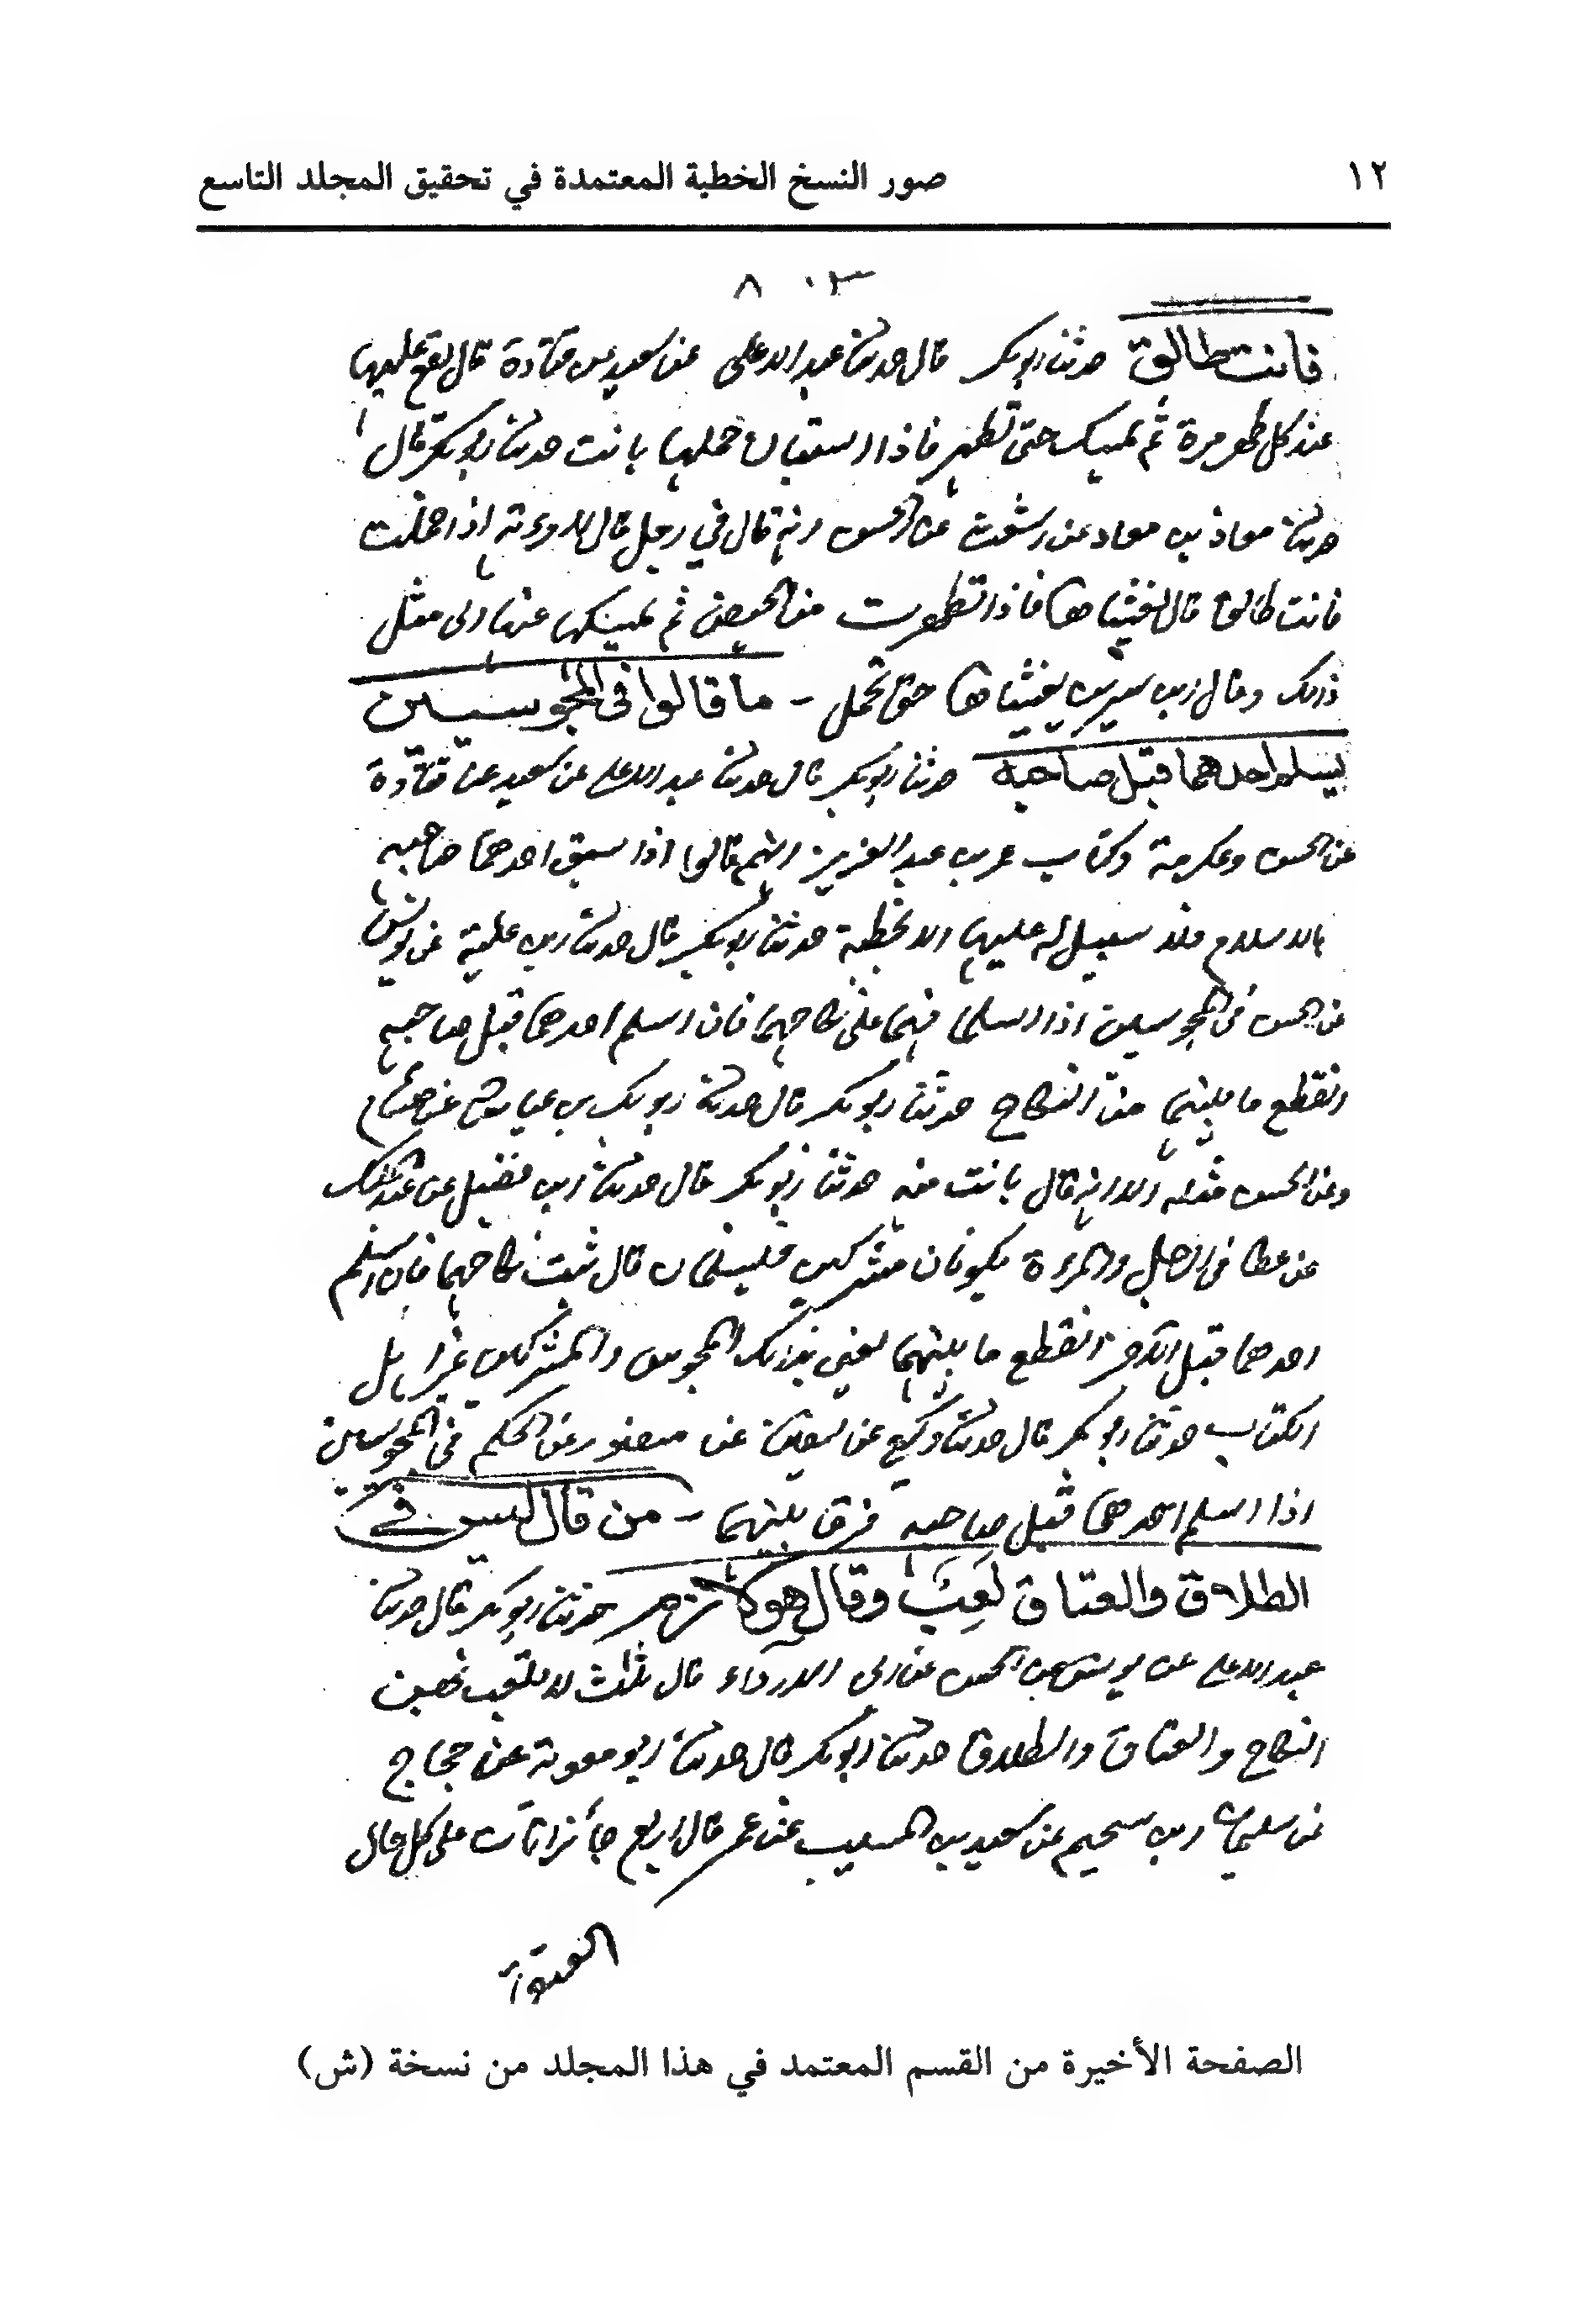 ١٢
صور النسخ الخطية المعتمدة في تحقيق المجلد التاسع
فانت طالق حدثنا ابو بكر قال حدثنا عبد الاعلى عن سعيد عن قتادة قال يقع عليها
عند كل طهر مرة ثم يمسك حتى تطهر فاذا استبان حملها بانت حدثنا ابو بكر قال
حدثنا معاذ بن معاذ عن اشعث عن الحسن انه قال في رجل قال لامرءته اذا حملت
فانت طالق قال يغشاها فاذا تطهرت من الحيض ثم يمسك عنها الى مثل
ذلك وقال ابن سيرين يغشاها حتى تحمل - ما قالوا في المجوسيين
يسلم احدهما قبل صاحبه حدثنا ابو بكر قال حدثنا عبد الاعلى عن سعيد عن قتادة
عن الحسن وعكرمة وكتاب عمر بن عبد العزيز انهم قالوا اذا سبق احدهما صاحبه
بالاسلام فلا سبيل له عليها الا بخطبة حدثنا ابو بكر قال حدثنا ابن علية عن يونس
عن الحسن في المجوسيين اذا اسلما فهما على نكاحهما فان اسلم احدهما قبل صاحبه
انقطع ما بينهما من النكاح حدثنا ابو بكر قال حدثنا ابو بكر بن عياش عن هشام
وعن الحسن مثله الا انه قال بانت منه حدثنا ابو بكر قال حدثنا ابن فضيل عن عبد الملك
عن عطا في الرجل والمرءة يكونان مشركين فيسلمان قال ثبت نكاحهما فان اسلم
احدهما قبل الآخر انقطع ما بينهما يعني بذلك المجوس والمشركين غير اهل
الكتاب حدثنا ابو بكر قال حدثنا وكيع عن سفين عن منصور عن الحكم في المجوسيين
اذا اسلم احدهما قبل صاحبه فرق بينهما - من قال ليس في
الطلاق والعتاق لعب وقال هو له لازم حدثنا ابو بكر قال حدثنا
عبد الاعلى عن يونس عن الحسن عن ابي الدرداء قال ثلث لا يلعب بهن
النكاح والعتاق والطلاق حدثنا ابو بكر قال حدثنا ابو معوية عن حجاج
عن سليمان بن سحيم عن سعيد بن المسيب عن عمر قال اربع جائزات على كل حال
الصفحة الأخيرة من القسم المعتمد في هذا المجلد من نسخة (ش)